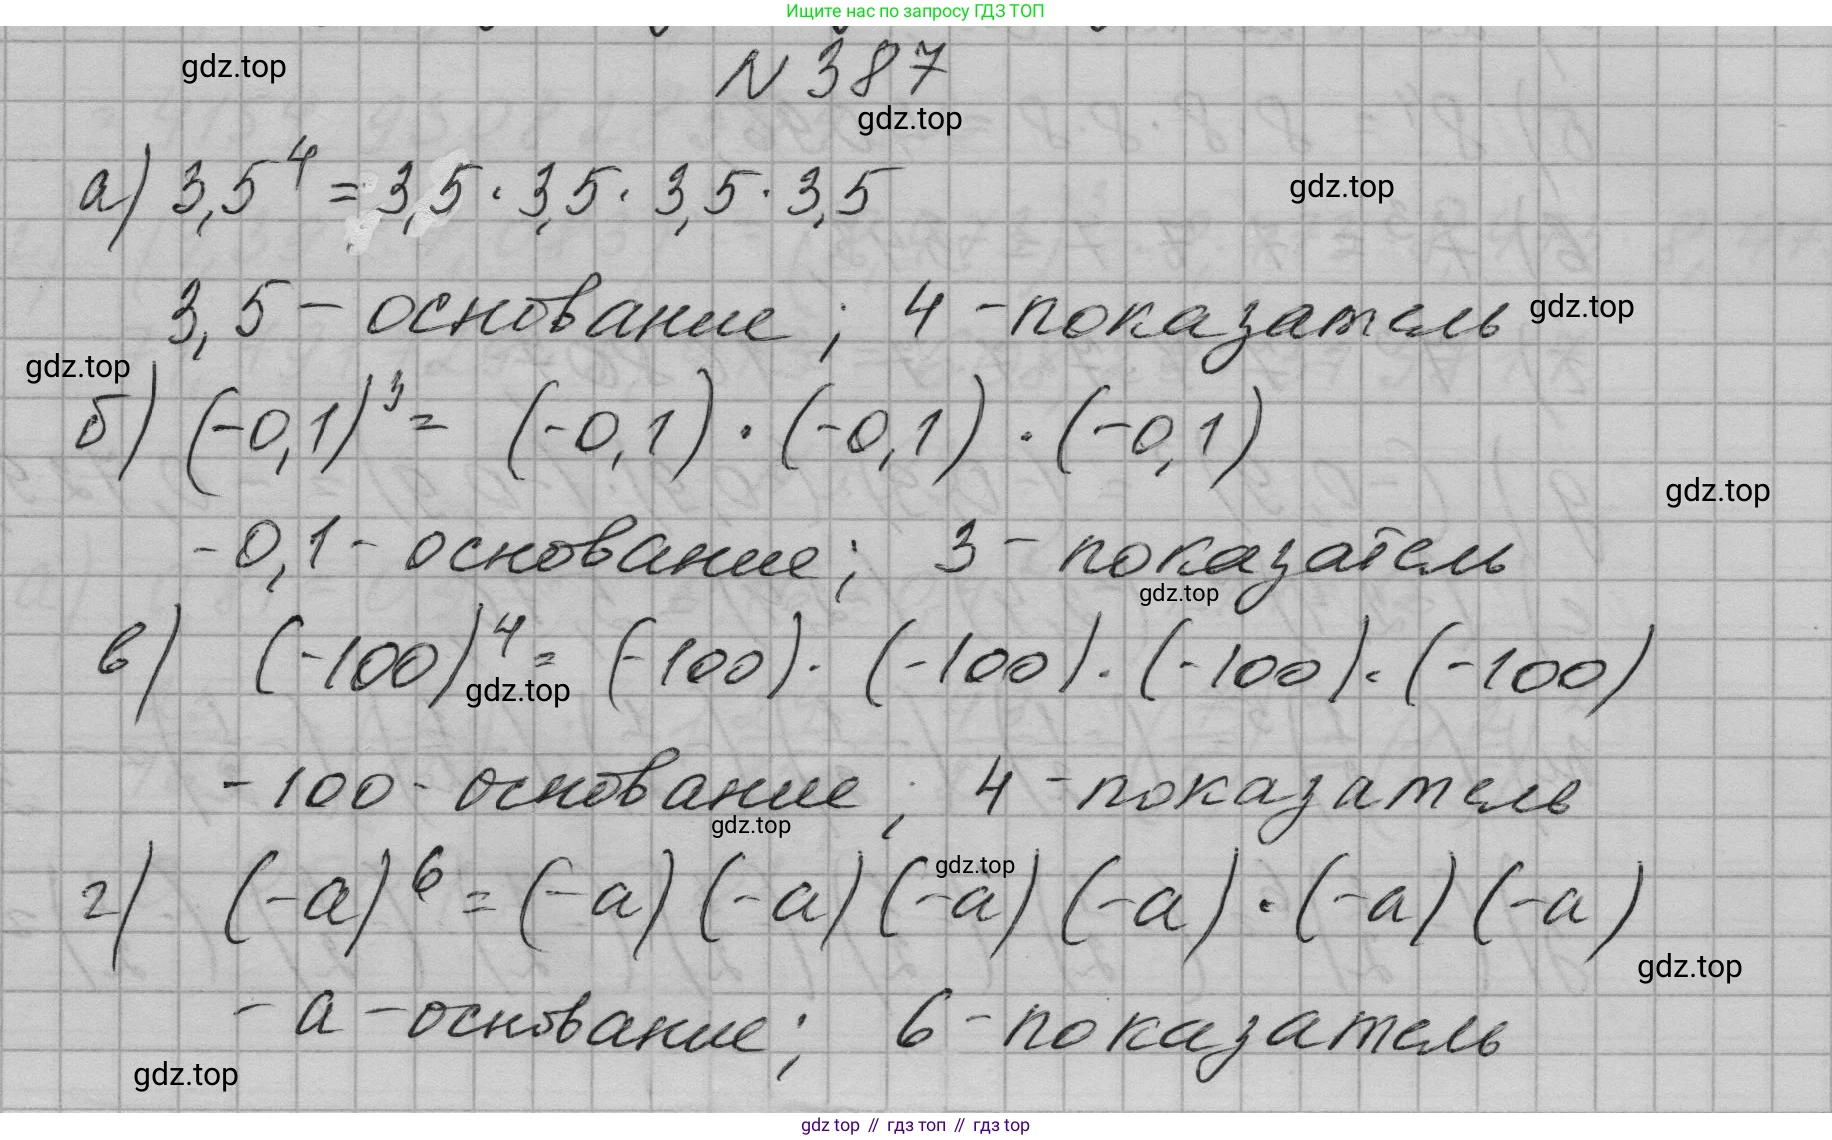 Ищите нас по запросу ГДЗ ТОП
N 387
gdz.top
gdz.top
а) 3,5⁴ = 3,5 · 3,5 · 3,5 · 3,5
gdz.top
3,5 – основание ; 4 – показатель
gdz.top
gdz.top
б) (-0,1)³ = (-0,1) · (-0,1) · (-0,1)
gdz.top
-0,1 - основание; 3 – показатель
gdz.top
в) (-100)⁴ = (-100) · (-100) · (-100) · (-100)
gdz.top
-100 - основание ; 4 - показатель
gdz.top
gdz.top
г) (-a)⁶ = (-a) (-a) (-a) (-a) · (-a) (-a)
gdz.top
- a - основание; 6 - показатель
gdz.top
gdz top // гдз топ // гдз top